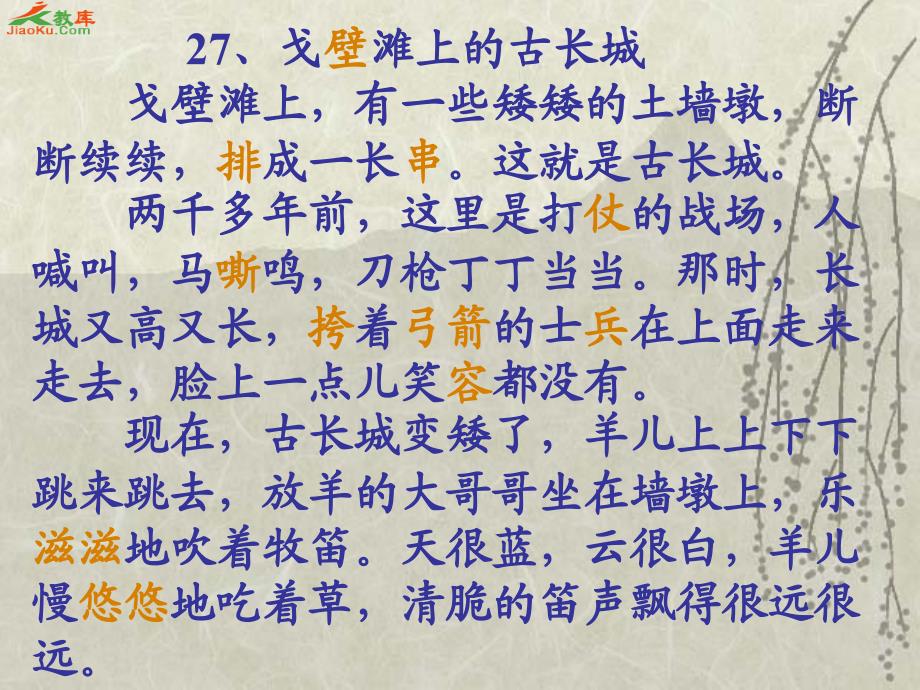 教库
JiaoKu.Com
27、戈壁滩上的古长城
戈壁滩上，有一些矮矮的土墙墩，断
断续续，排成一长串。这就是古长城。
两千多年前，这里是打仗的战场，人
喊叫，马嘶鸣，刀枪丁丁当当。那时，长
城又高又长，挎着弓箭的士兵在上面走来
走去，脸上一点儿笑容都没有。
现在，古长城变矮了，羊儿上上下下
跳来跳去，放羊的大哥哥坐在墙墩上，乐
滋滋地吹着牧笛。天很蓝，云很白，羊儿
慢悠悠地吃着草，清脆的笛声飘得很远很
远。